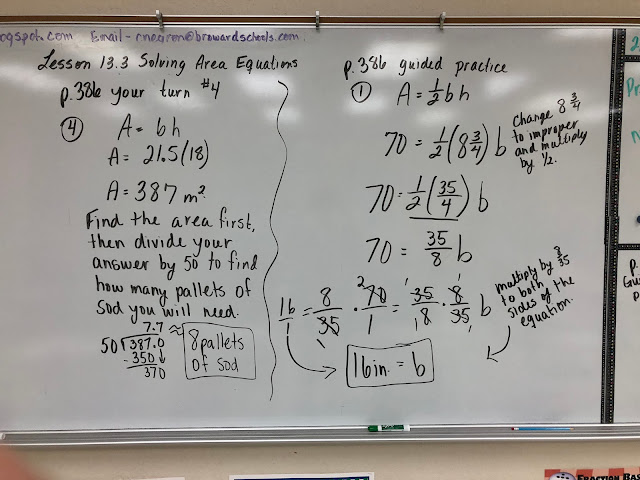 ogspot.com Email - rnegron@browardschools.com
Lesson 13.3 Solving Area Equations
p.386 your turn #4
④ A = bh
A = 21.5(18)
A = 387 m².
Find the area first,
then divide your
answer by 50 to find
how many pallets of
sod you will need.
7.7 ≈ 8 pallets of sod
50 387.0
-350↓
370
p.386 guided practice
① A = 1/2 bh
70 = 1/2 (8 3/4) b
change 8 3/4
to improper
and multiply
by 1/2.
70 = 1/2 (35/4) b
70 = 35/8 b
multiply by 8/35
to both
sides of the
equation.
16/1 = 8/35 · 70/1 = 35/8 · 8/35 b
16in. = b
FRACTION BAS